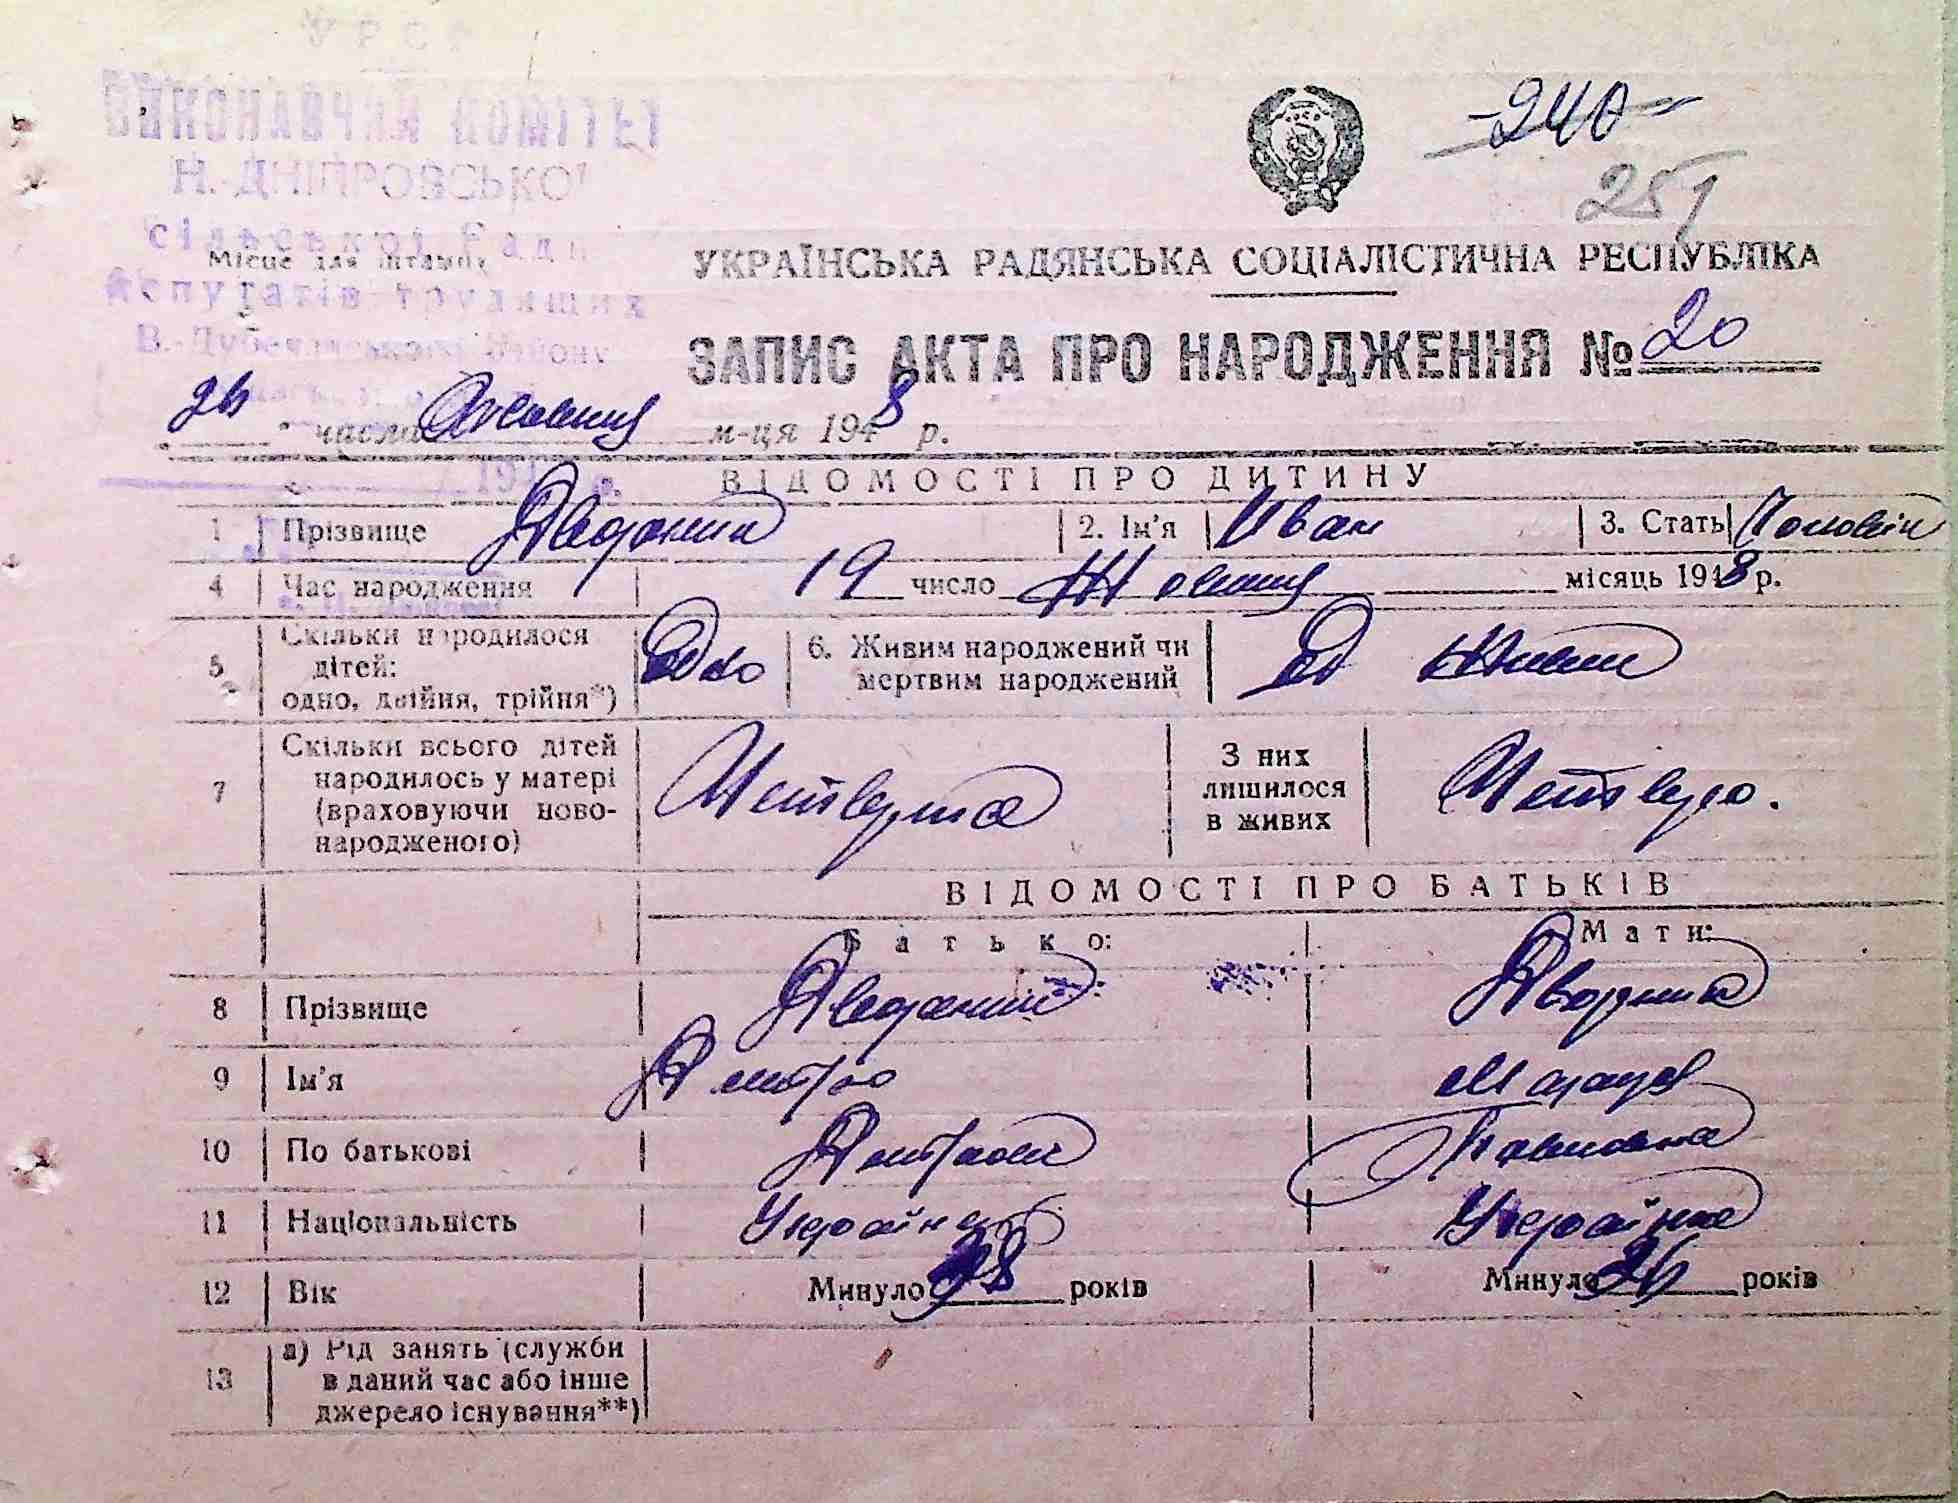 УРСР
ВИКОНАВЧИЙ КОМІТЕТ
Н.-ДНІПРОВСЬКОЇ
сільської Ради
Місце для штампу
депутатів трудящих
В.-Дубечанського району
-240-
251
УКРАЇНСЬКА РАДЯНСЬКА СОЦІАЛІСТИЧНА РЕСПУБЛІКА
ЗАПИС АКТА ПРО НАРОДЖЕННЯ № 20
26 числа Жовтня м-ця 1948 р.
194 р.
ВІДОМОСТІ ПРО ДИТИНУ
1 Прізвище 2. Ім'я Іван 3. Стать Чоловіч
4 Час народження 19 число Жовтня місяць 1948 р.
5 Скільки народилося дітей: одно, двійня, трійня*) Одно 6. Живим народжений чи мертвим народжений Живим
7 Скільки всього дітей народилось у матері (враховуючи новонародженого) Четверта З них лишилося в живих Четверо.
ВІДОМОСТІ ПРО БАТЬКІВ
Батько: Мати:
8 Прізвище
9 Ім'я Дмитро
10 По батькові Дмитрович Павловна
11 Національність Українец Українка
12 Вік Минуло 38 років Минуло 36 років
13 а) Рід занять (служби в даний час або інше джерело існування**)